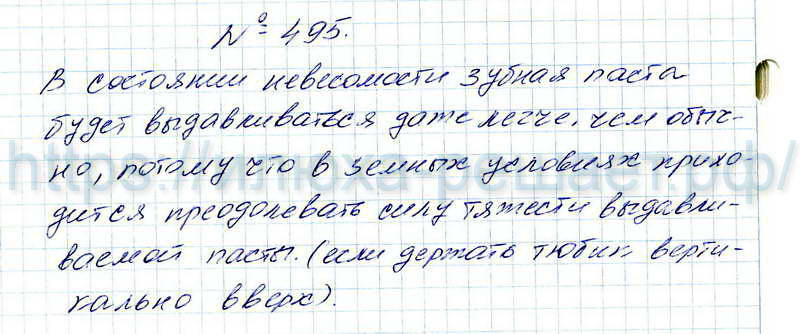 № 495.
В состоянии невесомости зубная паста
будет выдавливаться даже легче, чем обыч-
но, потому что в земных условиях прихо-
дится преодолевать силу тяжести выдавли-
ваемой пасты. (если держать тюбик верти-
кально вверх).